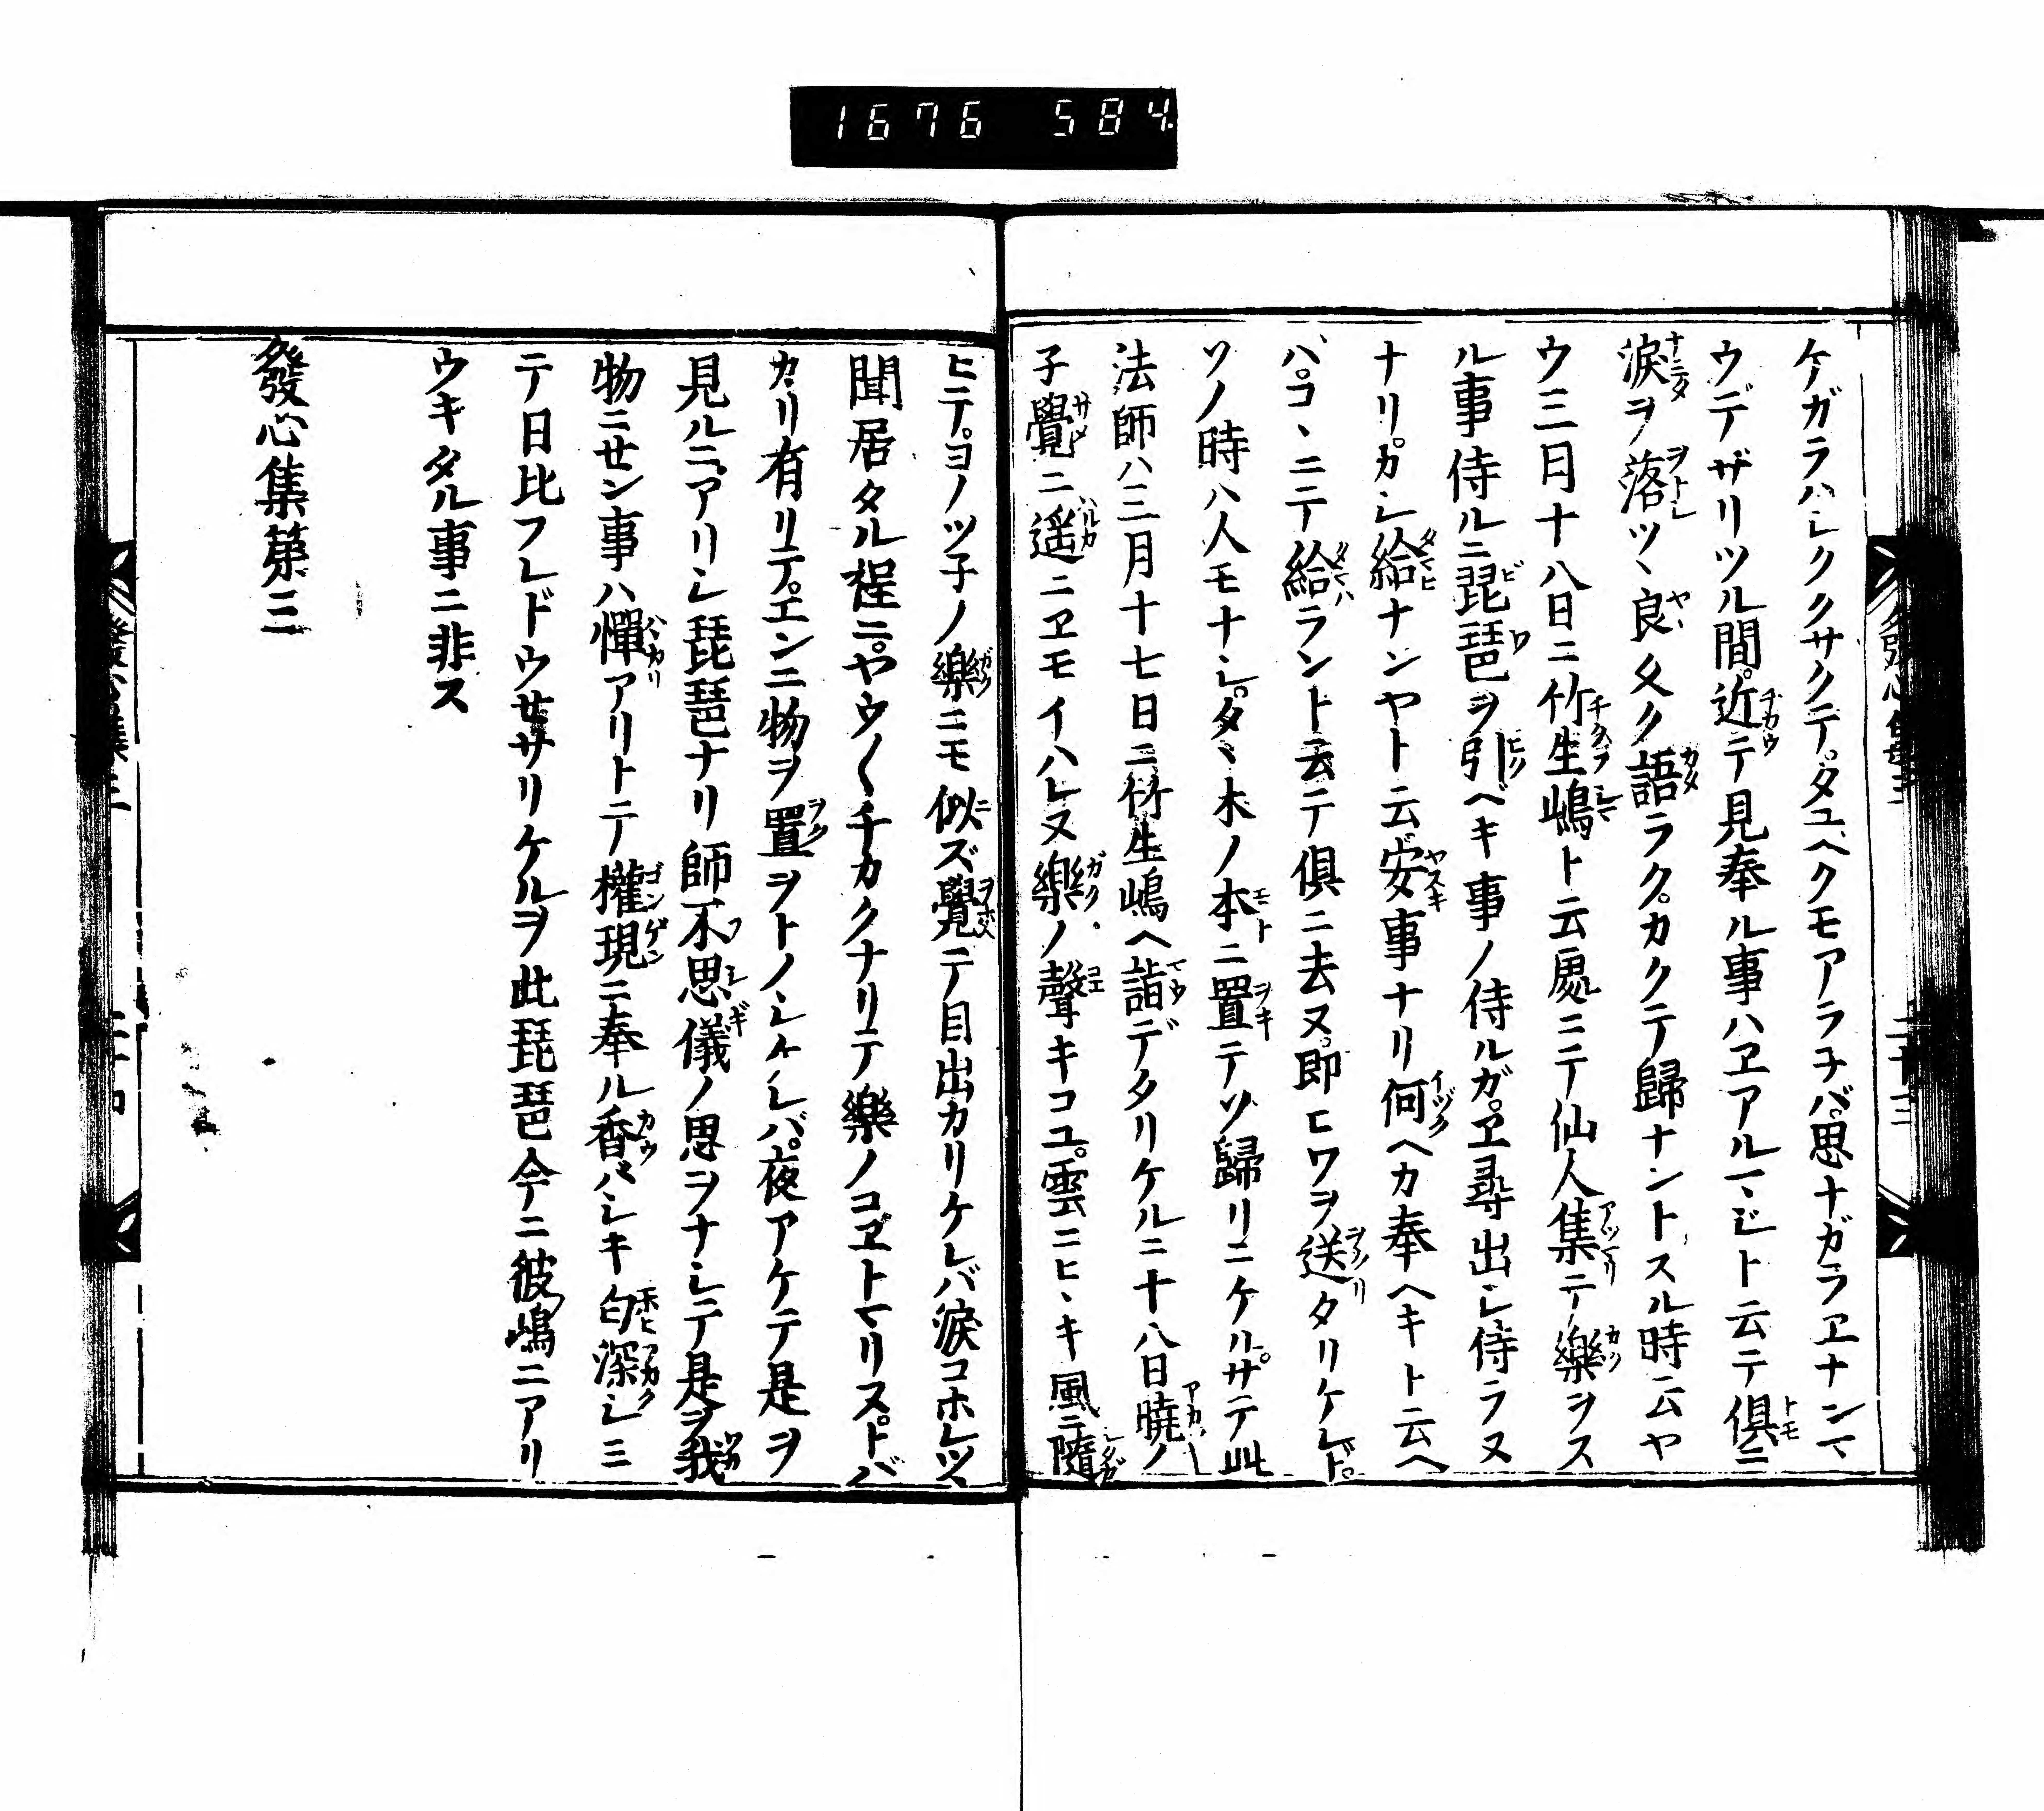 1676 584.
ケガラハシククサクテ。タユヘクモアラ子バ。思ナガラヱナンマ
ウデザリツル間。近テ見奉ル事ハヱアルマヽジト云テ俱ニ
涙ヲ落ツヽ良久ク語ラク。カクテ歸ナントスル時ニ云ヤ
ウ三月十八日ニ竹生嶋ト云處ニテ仙人集テ樂ヲス
ル事侍ルニ琵琶ヲ引ベキ事ノ侍ルガ。ヱ尋出シ侍ラヌ
ナリ。カシ給ナンヤト云。安事ナリ何ヘカ奉ヘキト云ヘ
バ。コヽニテ給ラント云テ俱ニ去ヌ。即ヒワヲ送タリケレド。
ソノ時ハ人モナシ。タヾ木ノ本ニ置テソ歸リニケル。サテ此
法師ハ三月十七日ニ竹生嶋ヘ詣デタリケルニ十八日曉ノ
子覺ニ遥ニヱモイハレヌ樂ノ聲キコユ。雲ニヒヽキ風ニ隨
ヒテ。ヨノツ子ノ樂ニモ似ズ覺テ目出カリケレバ涙コホレツヽ
聞居タル程ニ。ヤウ〱チカクナリテ樂ノコヱトマリヌ。トバ
カリ有リテ。エンニ物ヲ置ヲトノシケレバ。夜アケテ是ヲ
見ルニ。アリシ琵琶ナリ師不思儀ノ思ヲナシテ是ヲ我
物ニセン事ハ憚アリトテ權現ニ奉ル香バシキ匂深シミ
テ日比フレドウセサリケルヲ此琵琶今ニ彼嶋ニアリ
ウキタル事ニ非ス
發心集第三